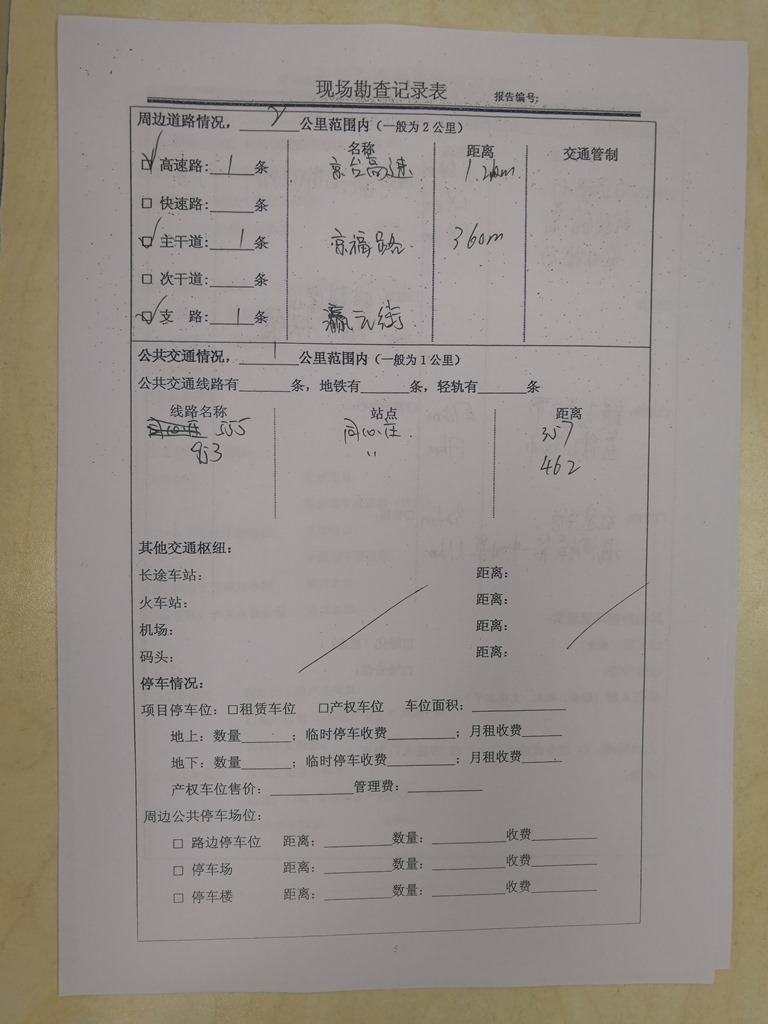 现场勘查记录表 报告编号:
周边道路情况，2公里范围内（一般为2公里）
名称 距离 交通管制
☑ 高速路:1条 京台高速 1.2km
□ 快速路:____条
☑ 主干道:1条 京福路 360m
□ 次干道:____条
☑ 支 路:1条 瀛元街
公共交通情况，1公里范围内（一般为1公里）
公共交通线路有______条，地铁有______条，轻轨有______条
线路名称 站点 距离
555 同心庄 357
953 〃 462
其他交通枢纽：
长途车站： 距离：
火车站： 距离：
机场： 距离：
码头： 距离：
停车情况：
项目停车位：□租赁车位 □产权车位 车位面积：____________
地上：数量______；临时停车收费________；月租收费_____
地下：数量______；临时停车收费________；月租收费_____
产权车位售价：__________管理费：_________
周边公共停车场位：
□ 路边停车位 距离：________数量：_________收费________
□ 停车场 距离：________数量：_________收费________
□ 停车楼 距离：________数量：_________收费________